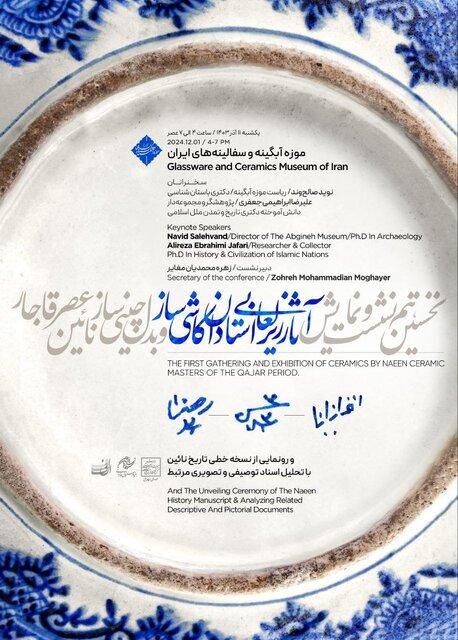 یکشنبه ۱۱ آذر ۱۴۰۳ / ساعت ۴ الی ۷ عصر
2024.12.01 / 4-7 PM
موزه آبگینه و سفالینه‌های ایران
Glassware and Ceramics Museum of Iran
سخنرانان
نوید صالح‌وند / ریاست موزه آبگینه / دکتری باستان شناسی
علیرضا ابراهیمی جعفری / پژوهشگر و مجموعه‌دار
دانش آموخته دکتری تاریخ و تمدن ملل اسلامی
Keynote Speakers
Navid Salehvand/Director of The Abgineh Museum/Ph.D In Archaeology
Alireza Ebrahimi Jafari/Researcher & Collector
Ph.D In History & Civilization of Islamic Nations
دبیر نشست / زهره محمدیان مغایر
Secretary of the conference / Zohreh Mohammadian Moghayer
نخستین نشست و نمایش آثار زیرلعابی استادان کاشی‌ساز و بدل چینی‌ساز نائین عصر قاجار
THE FIRST GATHERING AND EXHIBITION OF CERAMICS BY NAEEN CERAMIC
MASTERS OF THE QAJAR PERIOD.
و رونمایی از نسخه خطی تاریخ نائین
با تحلیل اسناد توصیفی و تصویری مرتبط
And The Unveiling Ceremony of The Naeen
History Manuscript & Analyzing Related
Descriptive And Pictorial Documents